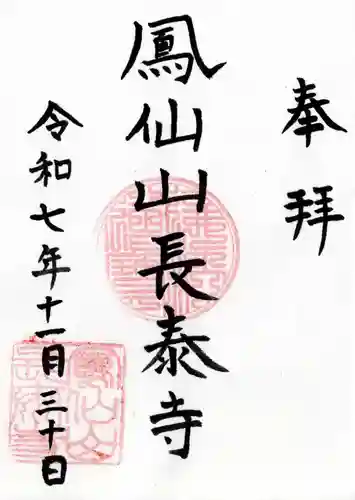 奉拝
鳳仙山長泰寺
令和七年十一月三十日